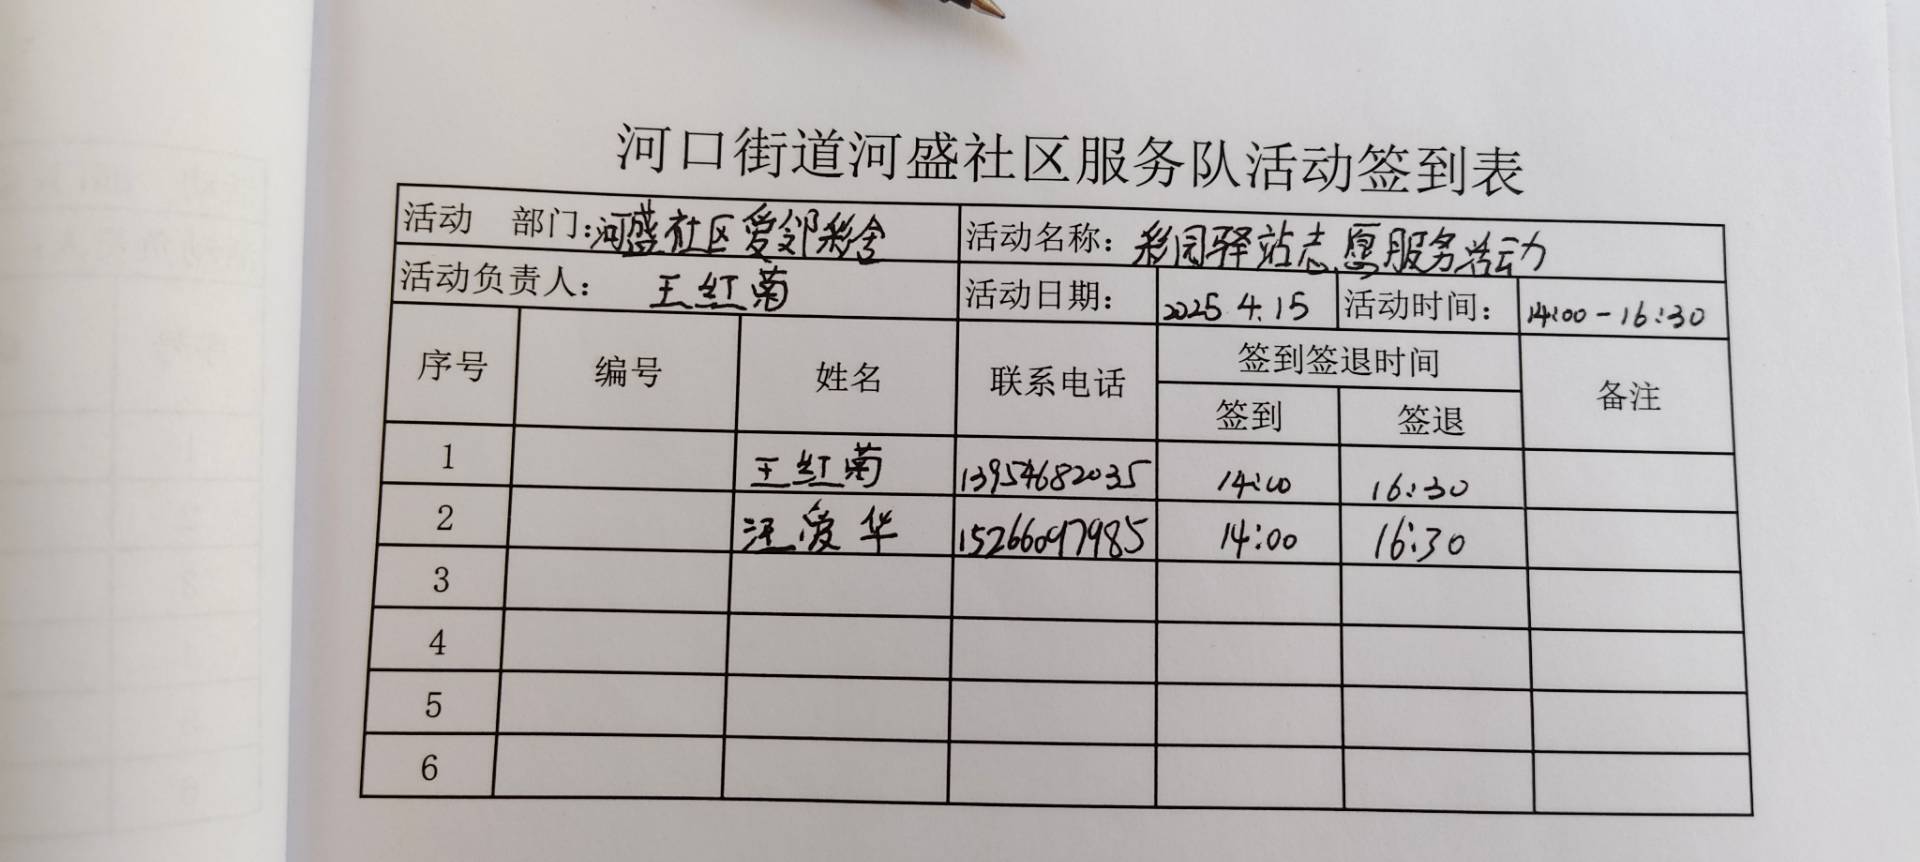 河口街道河盛社区服务队活动签到表
活动 部门：河盛社区爱邻彩舍 活动名称：彩园驿站志愿服务活动
活动负责人： 王红菊 活动日期： 2025.4.15 活动时间： 14:00-16:30
序号 编号 姓名 联系电话 签到签退时间 备注
签到 签退
1 王红菊 13954682035 14:00 16:30
2 汪爱华 15266097985 14:00 16:30
3
4
5
6